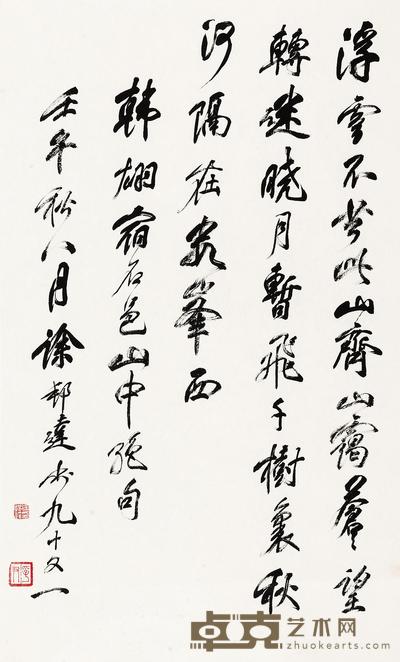 浮雲不共此山齊山靄蒼蒼望
轉迷曉月暫飛千樹裏秋
河隔在數峯西
韩翃宿石邑山中絕句
壬午秋八月徐邦達书九十又一
卓克艺术网
zhuokearts.com